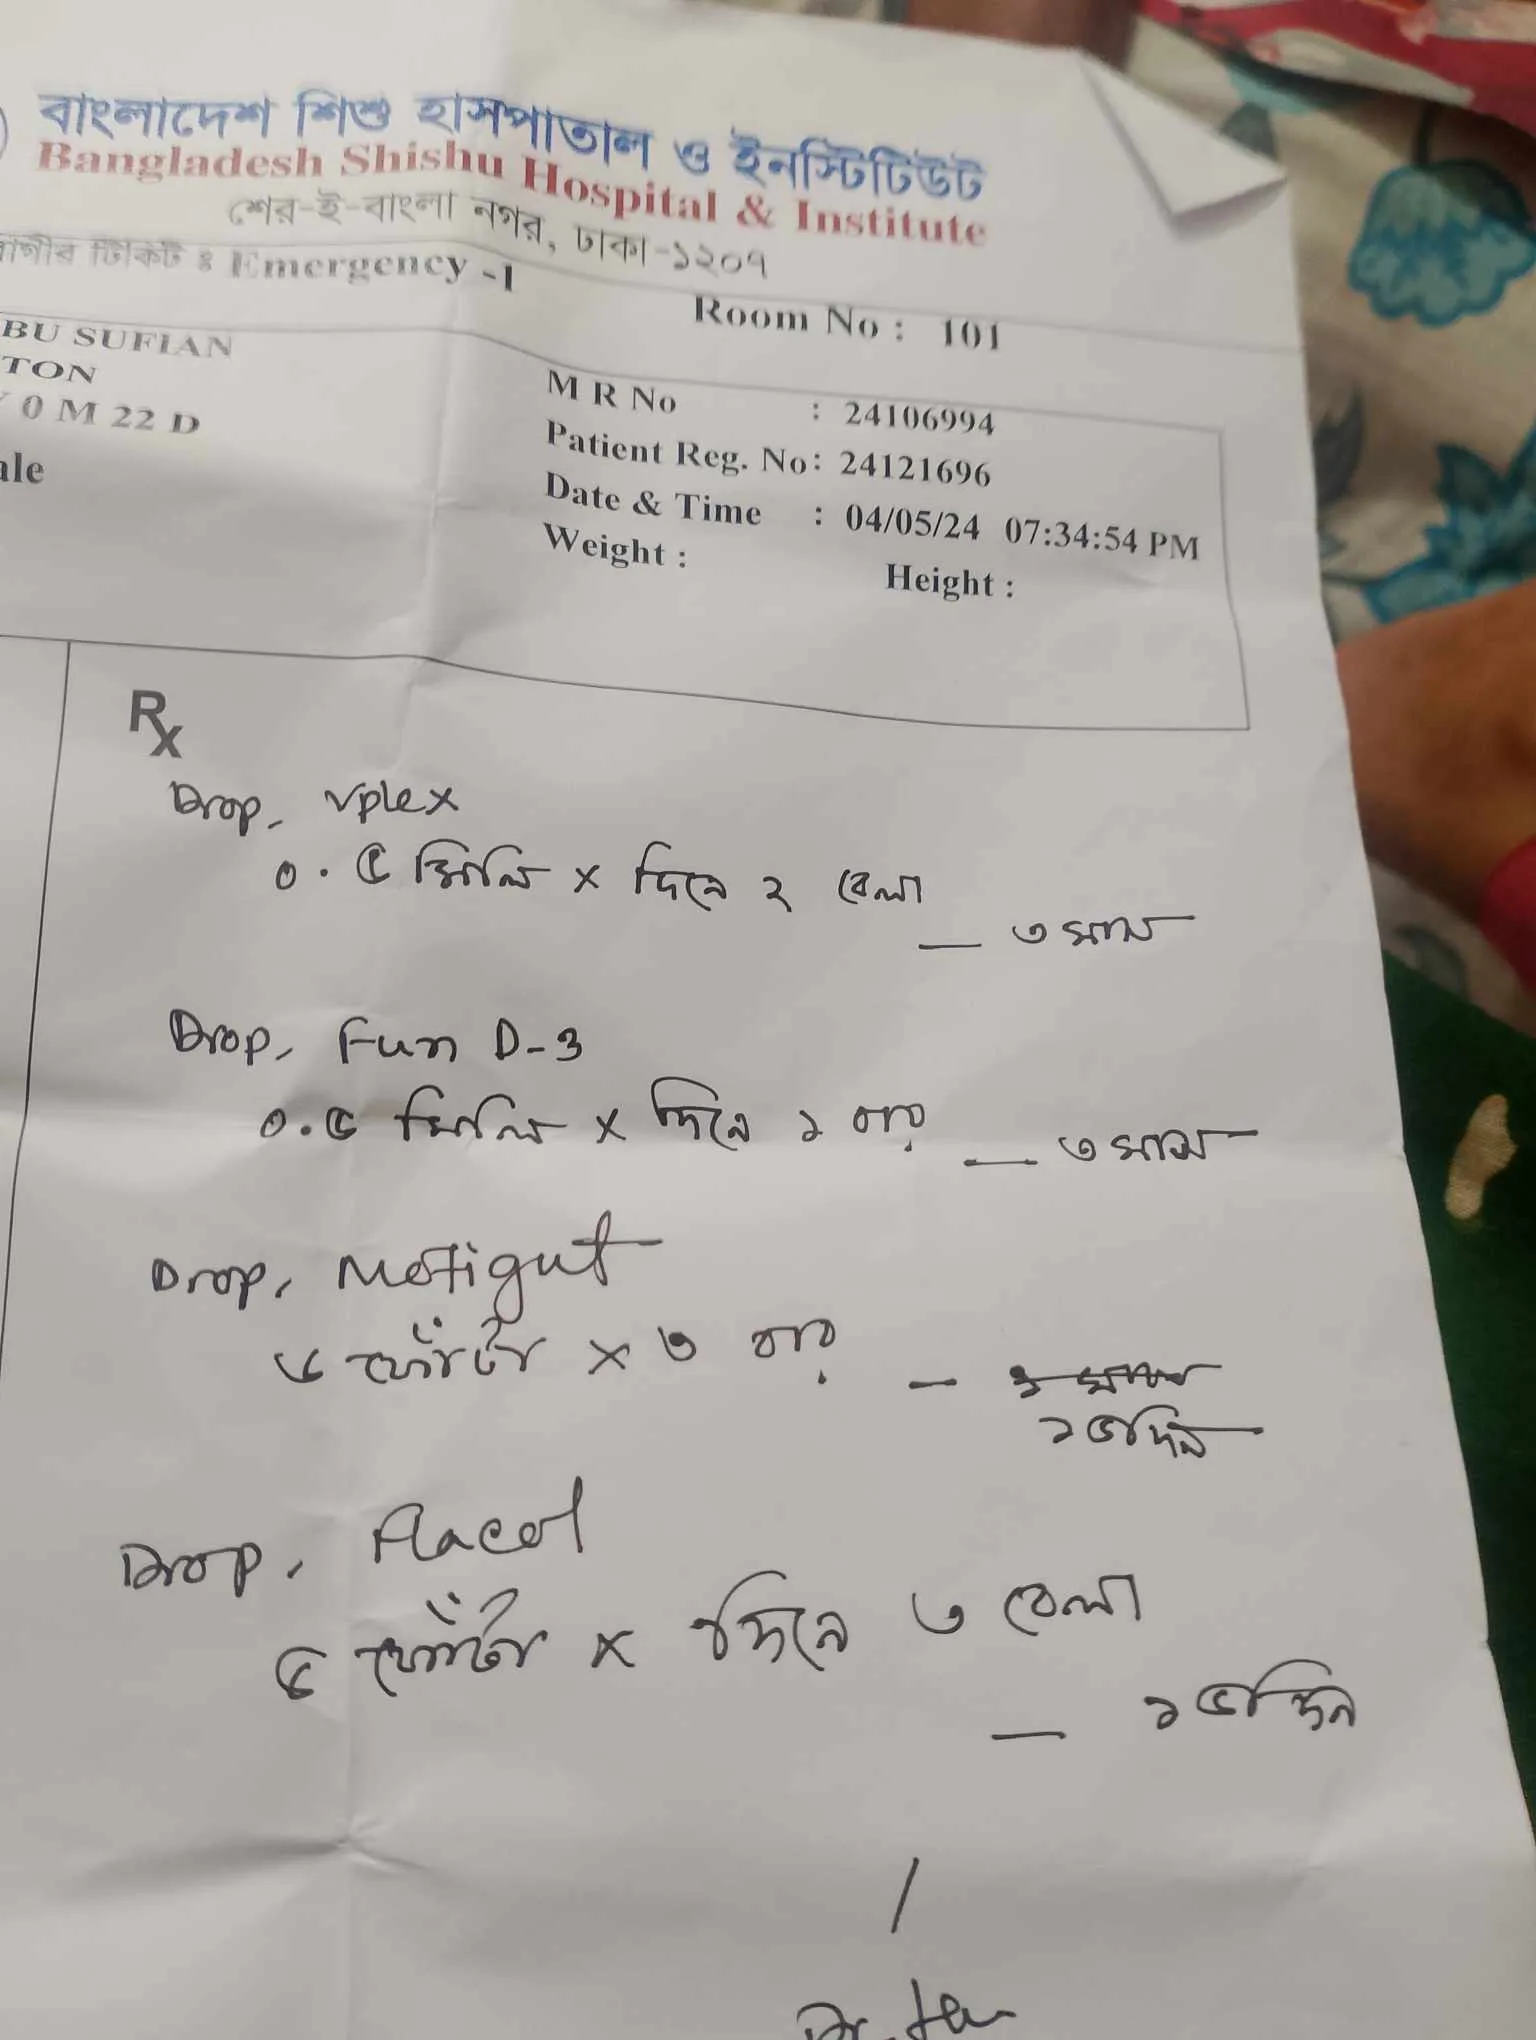 বাংলাদেশ শিশু হাসপাতাল ও ইনস্টিটিউট
Bangladesh Shishu Hospital & Institute
শের-ই-বাংলা নগর, ঢাকা-১২০৭
টিকিট : Emergency -1
Room No : 101
BU SUFIAN
TON
0 M 22 D
ale
M R No : 24106994
Patient Reg. No: 24121696
Date & Time : 04/05/24 07:34:54 PM
Weight : Height :
Rx
Drop, Vplex
০.৫ মিলি × দিনে ২ বেলা
— ৩ মাস
Drop, Fun D-3
০.৫ মিলি × দিনে ১ বার
— ৩ মাস
Drop, Motigut
৬ ফোঁটা × ৩ বার —
১৫ দিন
Drop, Flacol
৫ ফোঁটা × দিনে ৩ বেলা
— ১৫ দিন
Dr.